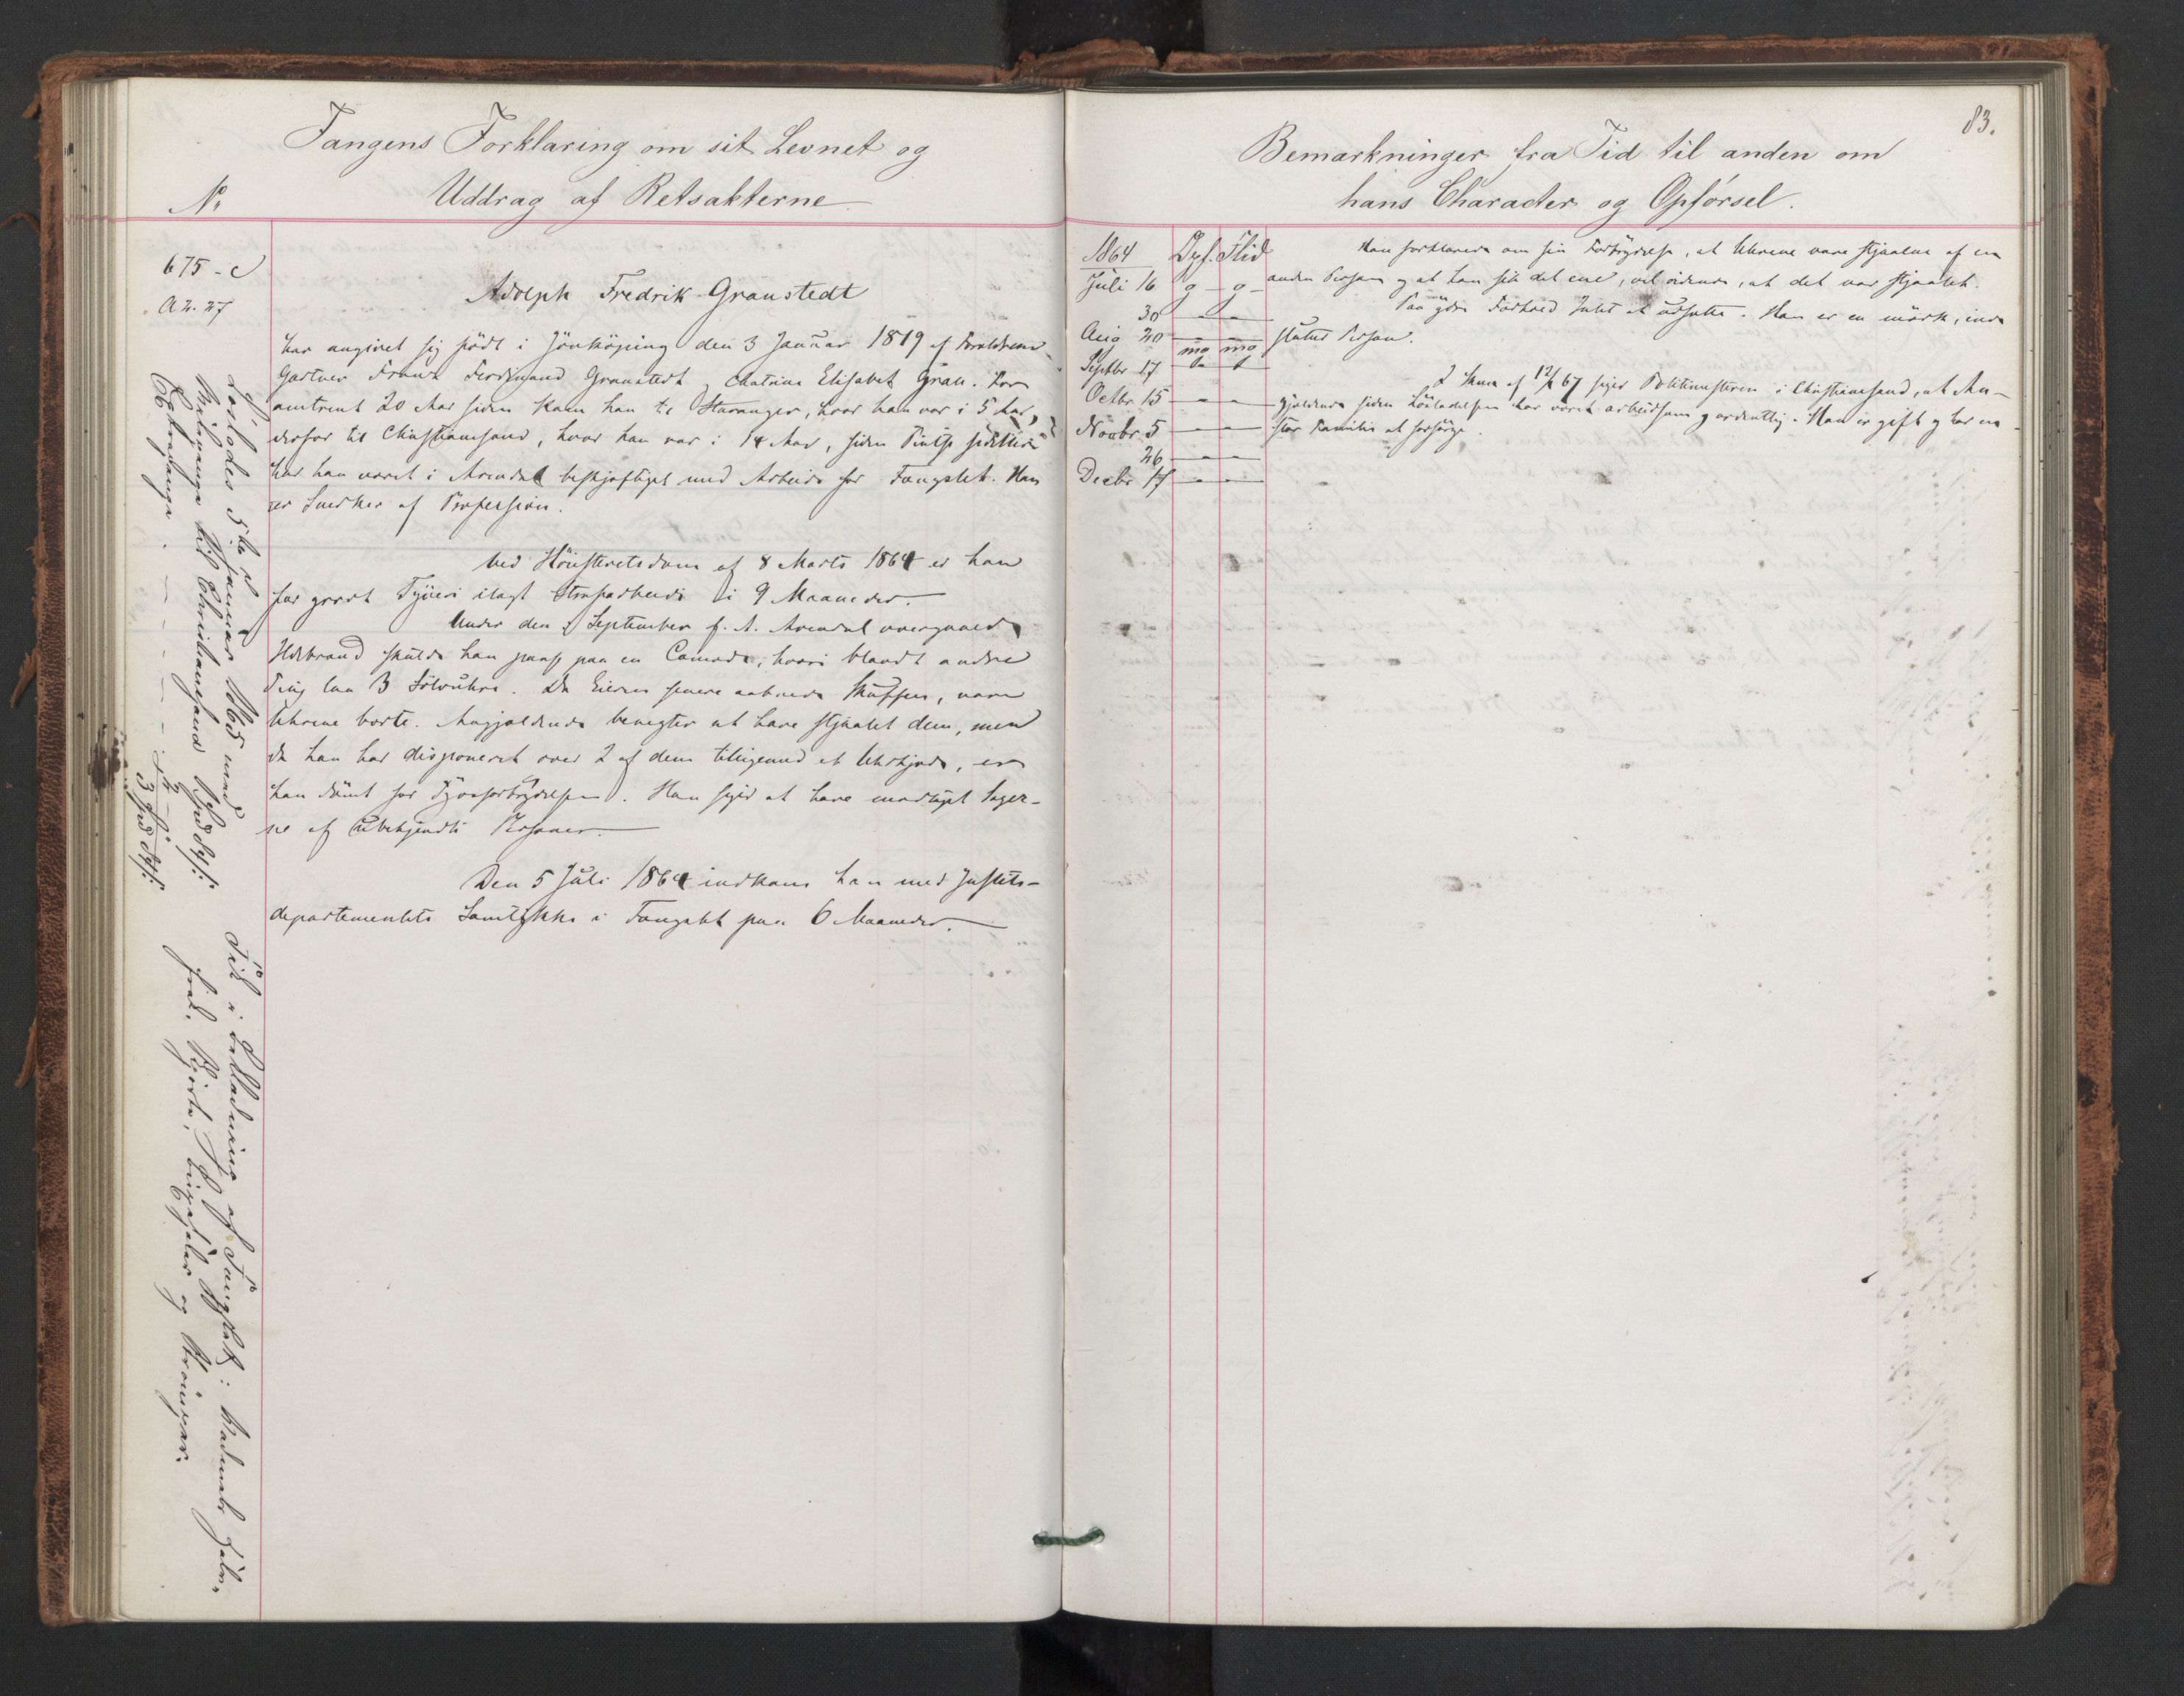 Fangens Forklaring om sit Levnet og
Uddrag af Retsakterne
No
675-c
a 2. 27
Adolph Fredrik Granstedt
har angivet sig født i Jönköping den 3 Januar 1819 af Forældrene
Gartner Frans Ferdinand Granstedt og Chatrine Elisabet Gran. For
omtrent 20 Aar siden kom han til Stavanger, hvor han var i 5 Aar,
derfor til Christiansand, hvor han var i 14 Aar, siden
har han været i Arendal beskjæftiget med Arbeide for Fængslet. Han
er Snedker af Profession.
Ved Höiesteretsdom af 8 Marts 1864 er han
for grovt Tyveri ilagt Strafarbeide i 9 Maaneder.
Under den i September f. A. Arendal overgaaede
Ildebrand skulde han passe paa en Comode, hvori blandt andre
Ting laa 3 Sölvuhre. Da Eieren senere aabnede Skuffen, vare
Uhrene borte. Angjældende benegter at have stjaalet dem, men
da han har disponeret over 2 af dem tilligemed et Uhrkjæde, er
han dömt for Tyvsforbrydelsen. Han siger at have modtaget Sager-
ne af ubekjendte Personer.
Den 5 Juli 1864 indkom han med Justits-
departementets Samtykke i Fængslet paa 6 Maaneder.
Löslodes 5te Januar 1865 med
til Christiansand
3
Fik i Beklædning af Fængslet: Vadmels
og Strömper.
83.
Bemærkninger fra Tid til anden om
hans Character og Opførsel.
1864 Opf. Flid
Juli 16 g g
30 — —
Aug 20 — —
mg mg
Septbr 17
Octbr. 15 — —
Novbr. 5 — —
26 — —
Decbr 17 — —
Han forklarede om sin Forbrydelse, at Uhrene vare stjaalne af en
anden Person og at han fik det ene, vel vidende, at det var stjaalet.
Paa Forhold Intet at udsætte. Han er en mörk, inde
sluttet Person.
I Skriv. af 12/ 67 siger Politimesteren i Christiansand, at An-
gjældende siden Lösladelsen har været arbeidsom og ordentlig. Han er gift og har en
stor Familie at forsörge.